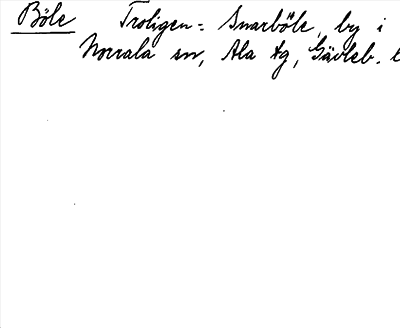 Böle Troligen = Snarböle, by i
Norrala sn, Ala tg, Gävleb. l